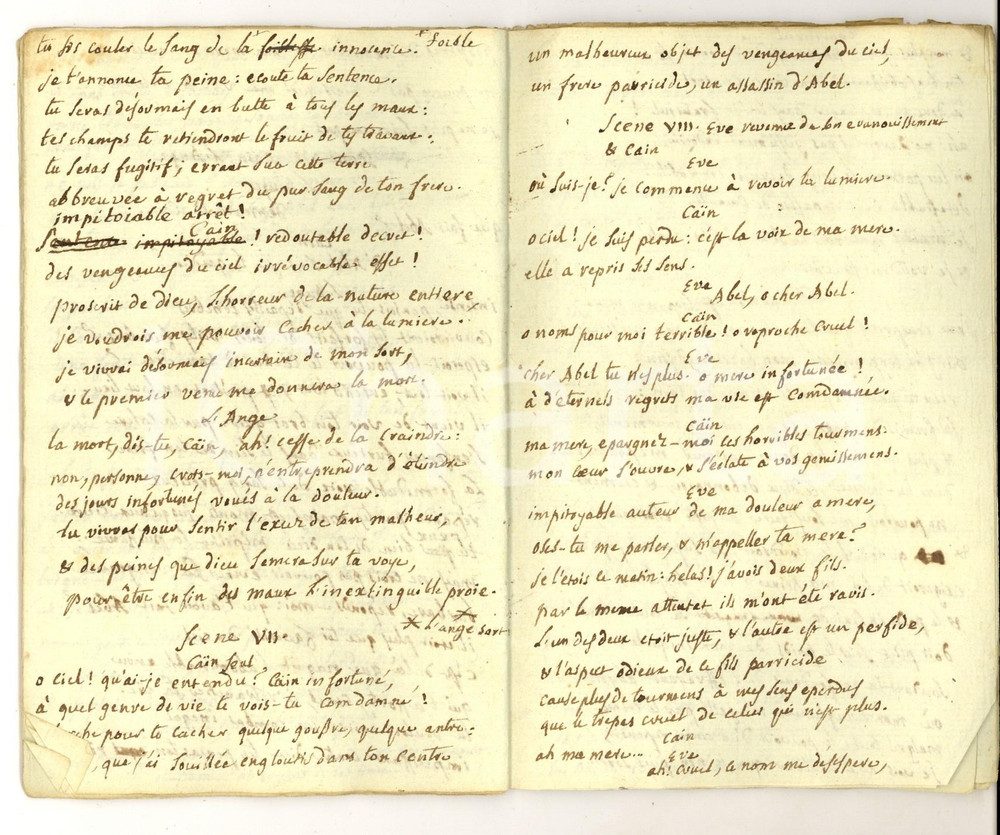 tu fis couler le sang de la ~~foiblesse~~ innocence. + foible
je t'annonce ta peine: ecoute ta sentence.
tu seras désormais en butte à tous les maux:
tes champs te retiendront le fruit de tes travaux.
tu seras fugitif; errant sur cette terre
abbreuvée à regret du pur sang de ton frere.
impitoiable arrêt!
Cain
~~Sentence impitoyable~~! redoutable decret!
des vengeances du ciel irrévocable effet!
proscrit de dieu, l'horreur de la nature entiere
je voudrois me pouvoir cacher à la lumiere.
je vivrai désormais incertain de mon sort,
& le premier venu me donnera la mort.
L'Ange
la mort, dis-tu, Caïn, ah! cesse de la craindre:
non, personne, crois-moi, n'entreprendra d'éteindre
des jours infortunés voués à la douleur.
tu vivras pour sentir l'excez de ton malheur,
& des peines que dieu semera sur ta voye,
pour être enfin des maux l'inextinguible proie.
* L'ange sort
Scene VII.
Caïn seul
o ciel! qu'ai-je entendu? Caïn infortuné,
à quel genre de vie te vois-tu condamné!
pour te cacher quelque gouffre, quelque antre:
, que j'ai souillée engloutis dans ton centre
un malheureux objet des vengeances du ciel,
un frere parricide, un assassin d'Abel.
Scene VIII. Eve revenue de son evanouissement
& Cain
Eve
où suis-je? je commence à revoir la lumiere.
Caïn
o ciel! je suis perdu: c'est la voix de ma mere.
elle a repris ses sens.
Eve
Abel, o cher Abel.
Caïn
o noms pour moi terrible! o reproche cruel!
Eve
cher Abel tu n'es plus. o mere infortunée!
à d'éternels regrets ma vie est condamnée.
Caïn
ma mere, epargnez-moi ces horribles tourmens.
mon cœur s'ouvre, & s'éclate à vos gemissemens.
Eve
impitoyable auteur de ma douleur amere,
oses-tu me parler, & m'appeller ta mere?
je l'étois ce matin: helas! j'avois deux fils.
par le meme attentat ils m'ont été ravis.
L'un des deux etoit juste, & l'autre est un perfide,
& l'aspect odieux de ce fils parricide
cause plus de tourmens à mes sens eperdus,
que le trepas cruel de celui qui n'est plus.
Caïn
ah ma mere...
Eve
ah! cruel, ce nom me désespere,